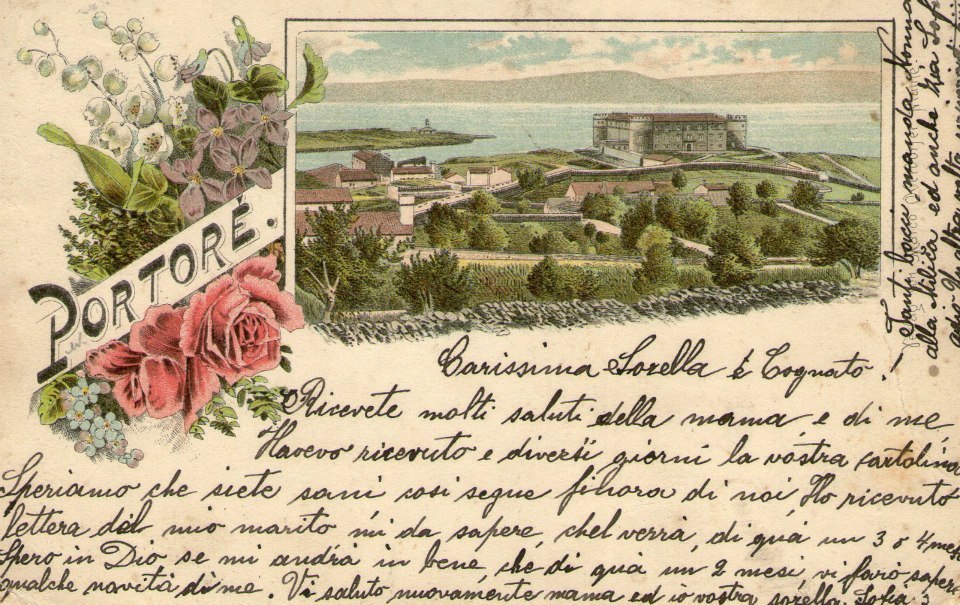 PORTORÉ.
Carissima Sorella é Cognato.
Ricevete molti saluti della mama e di me
Havevo ricevuto e diversi giorni la vostra cartolina
Speriamo che siete sani cosi segue finora di noi, Ho ricevuto
lettera del mio marito mi da sapere, chel verrà, di quà un 3 o 4 mesi
Spero in Dio se mi andrà in bene, che di quà un 2 mesi, vi farò sapere
qualche novità di me. Vi saluto nuovamente mama ed io vostra sorella Sofia
Tanti bacci manda Nonna
alla Milića ed anche zia Sofi